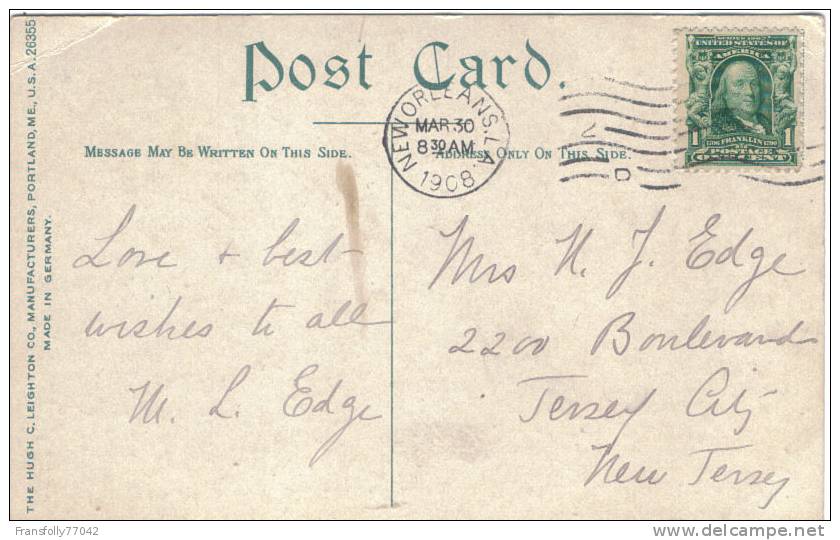 Post Card.
MESSAGE MAY BE WRITTEN ON THIS SIDE.
ADDRESS ONLY ON THIS SIDE.
NEW ORLEANS, LA.
MAR 30
8 30 AM
1908
SERIES 1902
UNITED STATES OF
AMERICA
1 1706 FRANKLIN 1790 1
POSTAGE
ONE CENT
D
Love + best
wishes to all
M. L. Edge
Mrs N. J. Edge
2200 Boulevard
Jersey City
New Jersey
THE HUGH C. LEIGHTON CO., MANUFACTURERS, PORTLAND, ME., U.S.A. 26355
MADE IN GERMANY.
Fransfolly77042